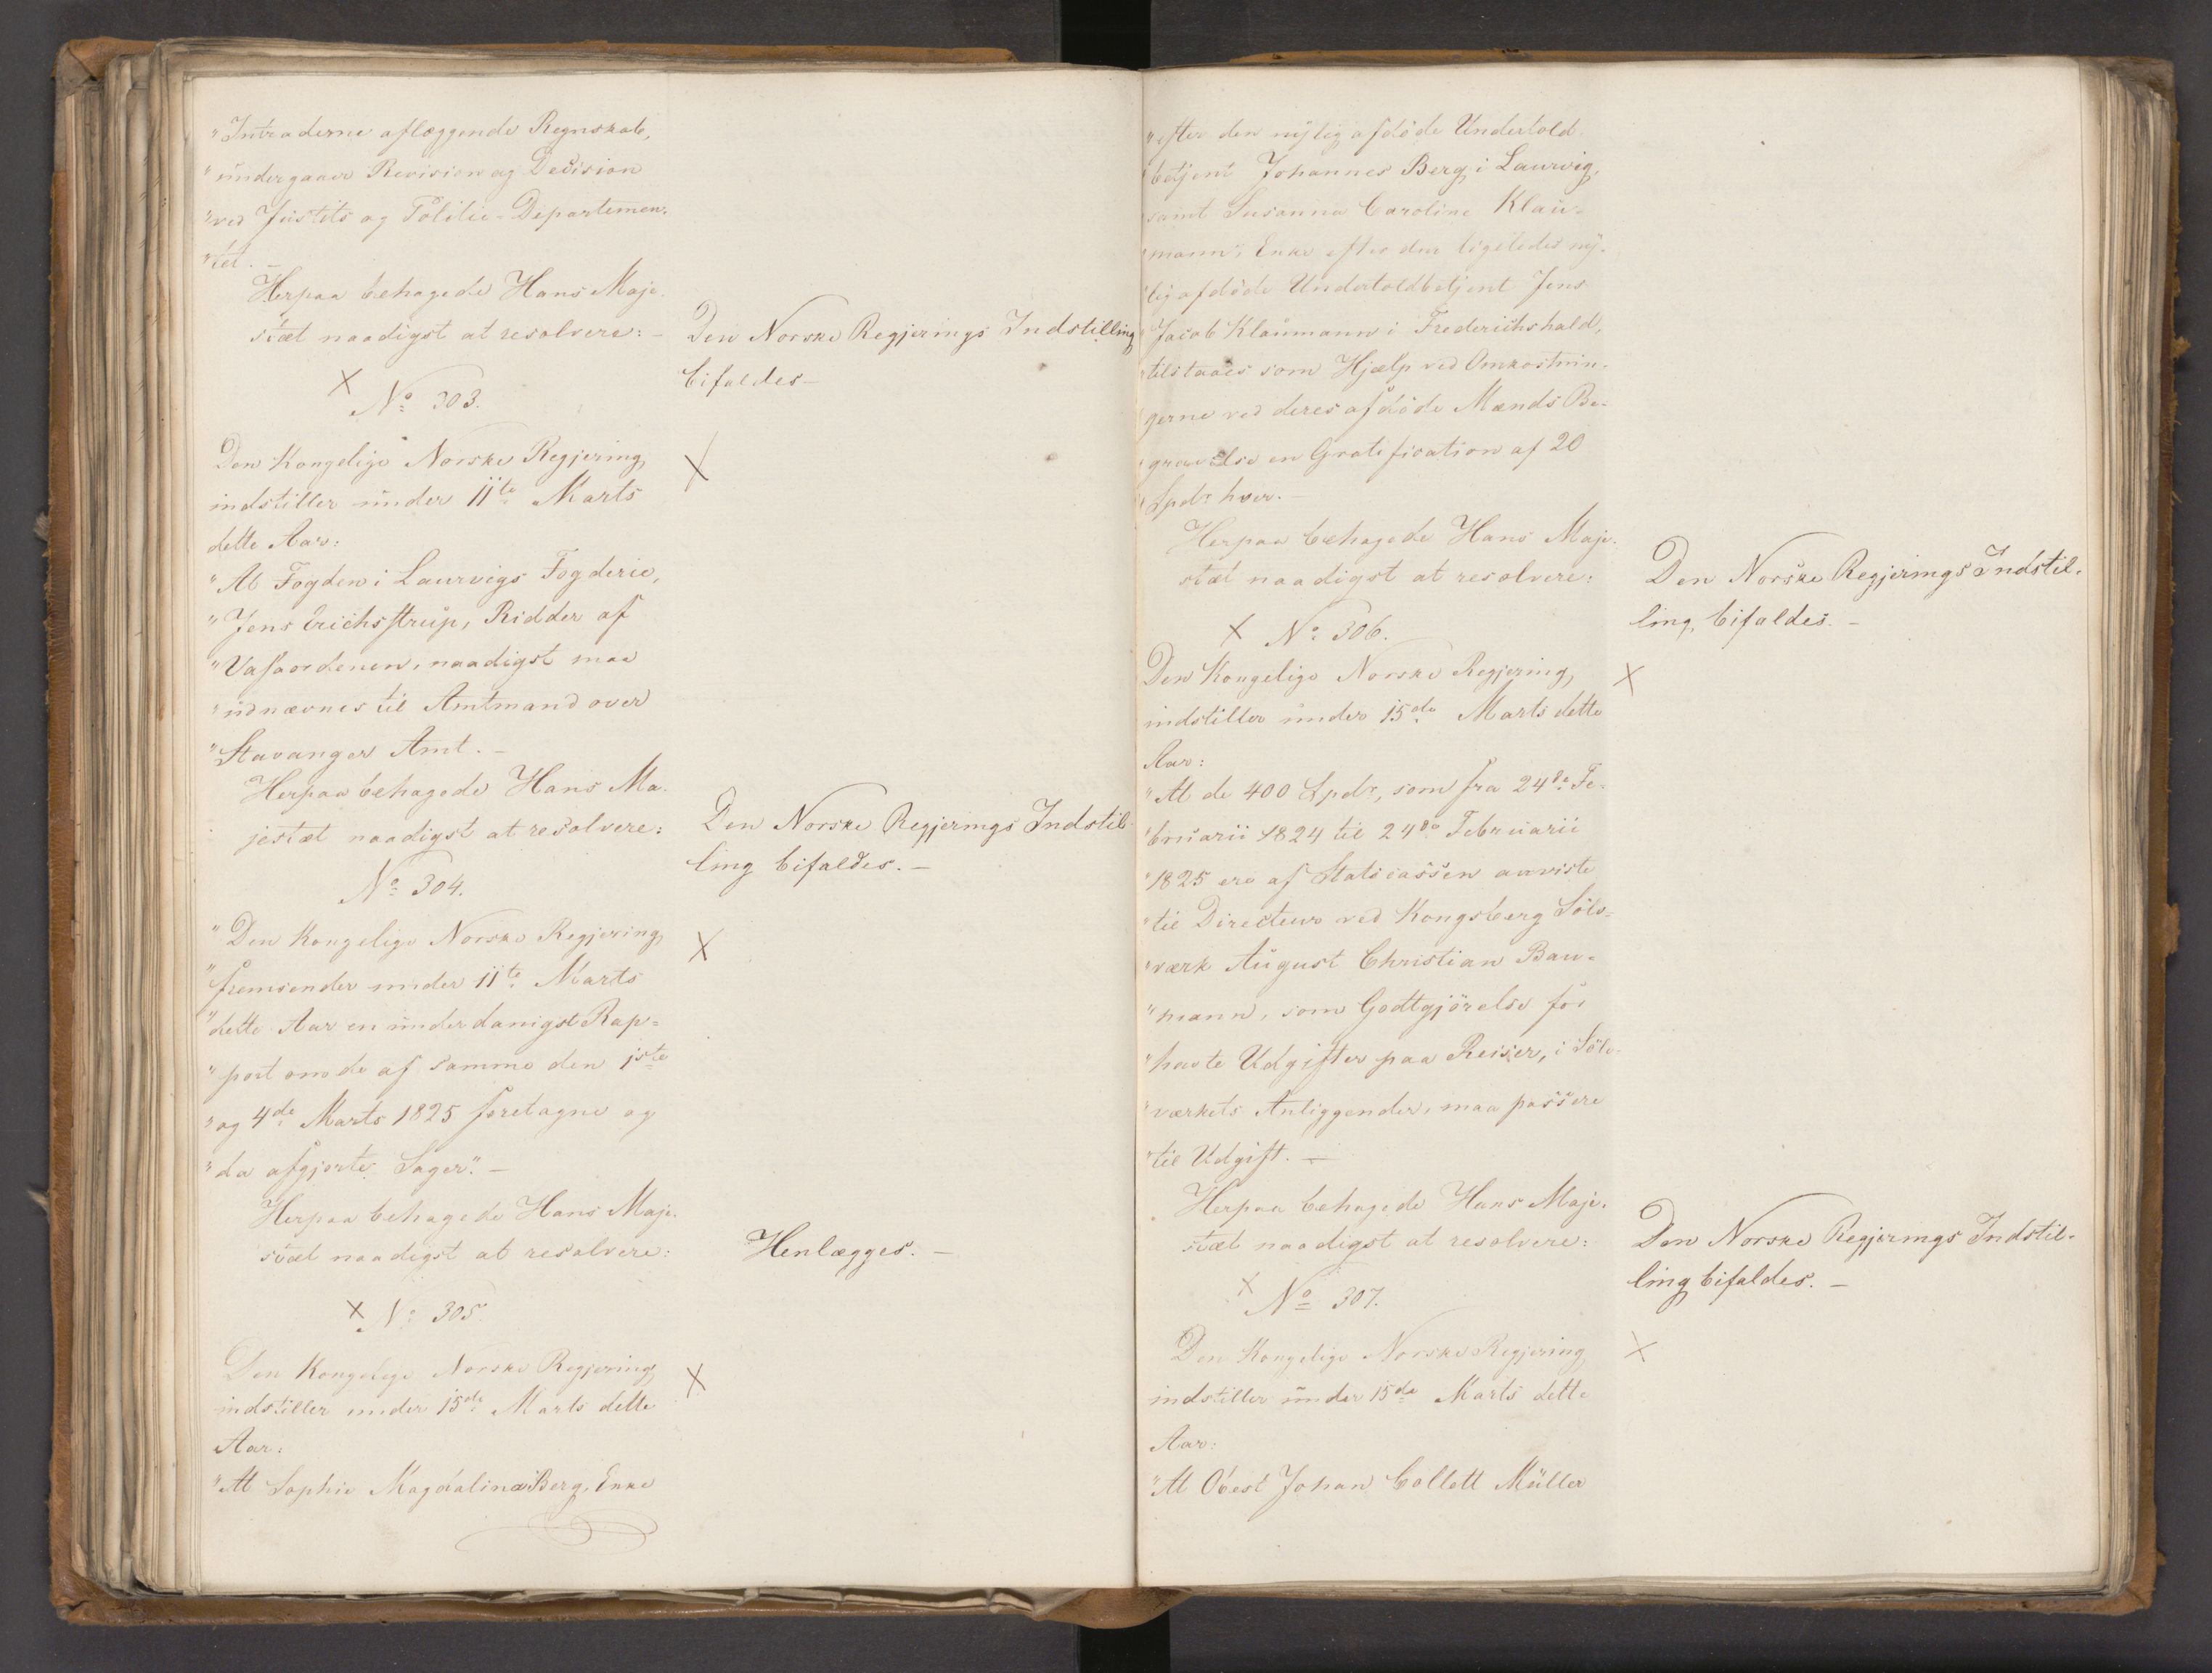 "Intraderne aflæggende Regnskab,
"undergaaer Revision og Decision
"ved Justits og Politie-Departemen-
"tet. -
Herpaa behagede Hans Maje-
stæt naadigst at resolvere: -
Den Norske Regjerings Indstilling
bifaldes -
X
No 303.
Den Kongelige Norske Regjering
indstiller under 11te Marts
dette Aar:
X
"At Fogden i Laurvigs Fogderie,
"Jens Erichstrup, Ridder af
"Vasaordenen, naadigst maa
"udnævnes til Amtmand over
"Stavanger Amt. -
Herpaa behagede Hans Ma-
jestæt naadigst at resolvere:
Den Norske Regjerings Indstil-
ling bifaldes. -
No 304.
"Den Kongelige Norske Regjering
"fremsender under 11te Marts
"dette Aar en underdanigst Rap-
"port om de af samme den 1ste
"og 4de Marts 1825 foretagne og
"da afgjorte Sager". -
X
Herpaa behagede Hans Maje-
stæt naadigst at resolvere:
Henlægges. -
X No 305
Den Kongelige Norske Regjering
indstiller under 15de Marts dette
Aar:
X
"At Sophie Magdalina Berg, Enke
"efter den nylig afdöde Undertold-
"betjent Johannes Berg i Laurvig,
"samt Susanna Caroline Klau-
"mann, Enke efter den ligeledes ny-
"lig afdöde Undertoldbetjent Jens
"Jacob Klaumann i Frederichshald,
"tilstaaes som Hjælp ved Omkostnin-
"gerne ved deres afdöde Mænds Be-
"gravelse en Gratification af 20
"Spdr hver. -
Herpaa behagede Hans Maje-
stæt naadigst at resolvere:
Den Norske Regjerings Indstil-
ling bifaldes. -
X No 306.
Den Kongelige Norske Regjering
indstiller under 15de Marts dette
Aar:
X
"At de 400 Spdr, som fra 24de Fe-
"bruarii 1824 til 24de Februarii
"1825 ere af Statscassen anviste
"til Directeur ved Kongsberg Sölv-
"værk August Christian Bau-
"mann, som Godtgjörelse for
"havte Udgifter paa Reiser, i Sölv-
"værkets Anliggender, maa passere
"til Udgift. -
Herpaa behagede Hans Maje-
stæt naadigst at resolvere:
Den Norske Regjerings Indstil-
ling bifaldes. -
X No 307.
Den Kongelige Norske Regjering
indstiller under 15de Marts dette
Aar:
X
"At Obest Johan Collett Müller